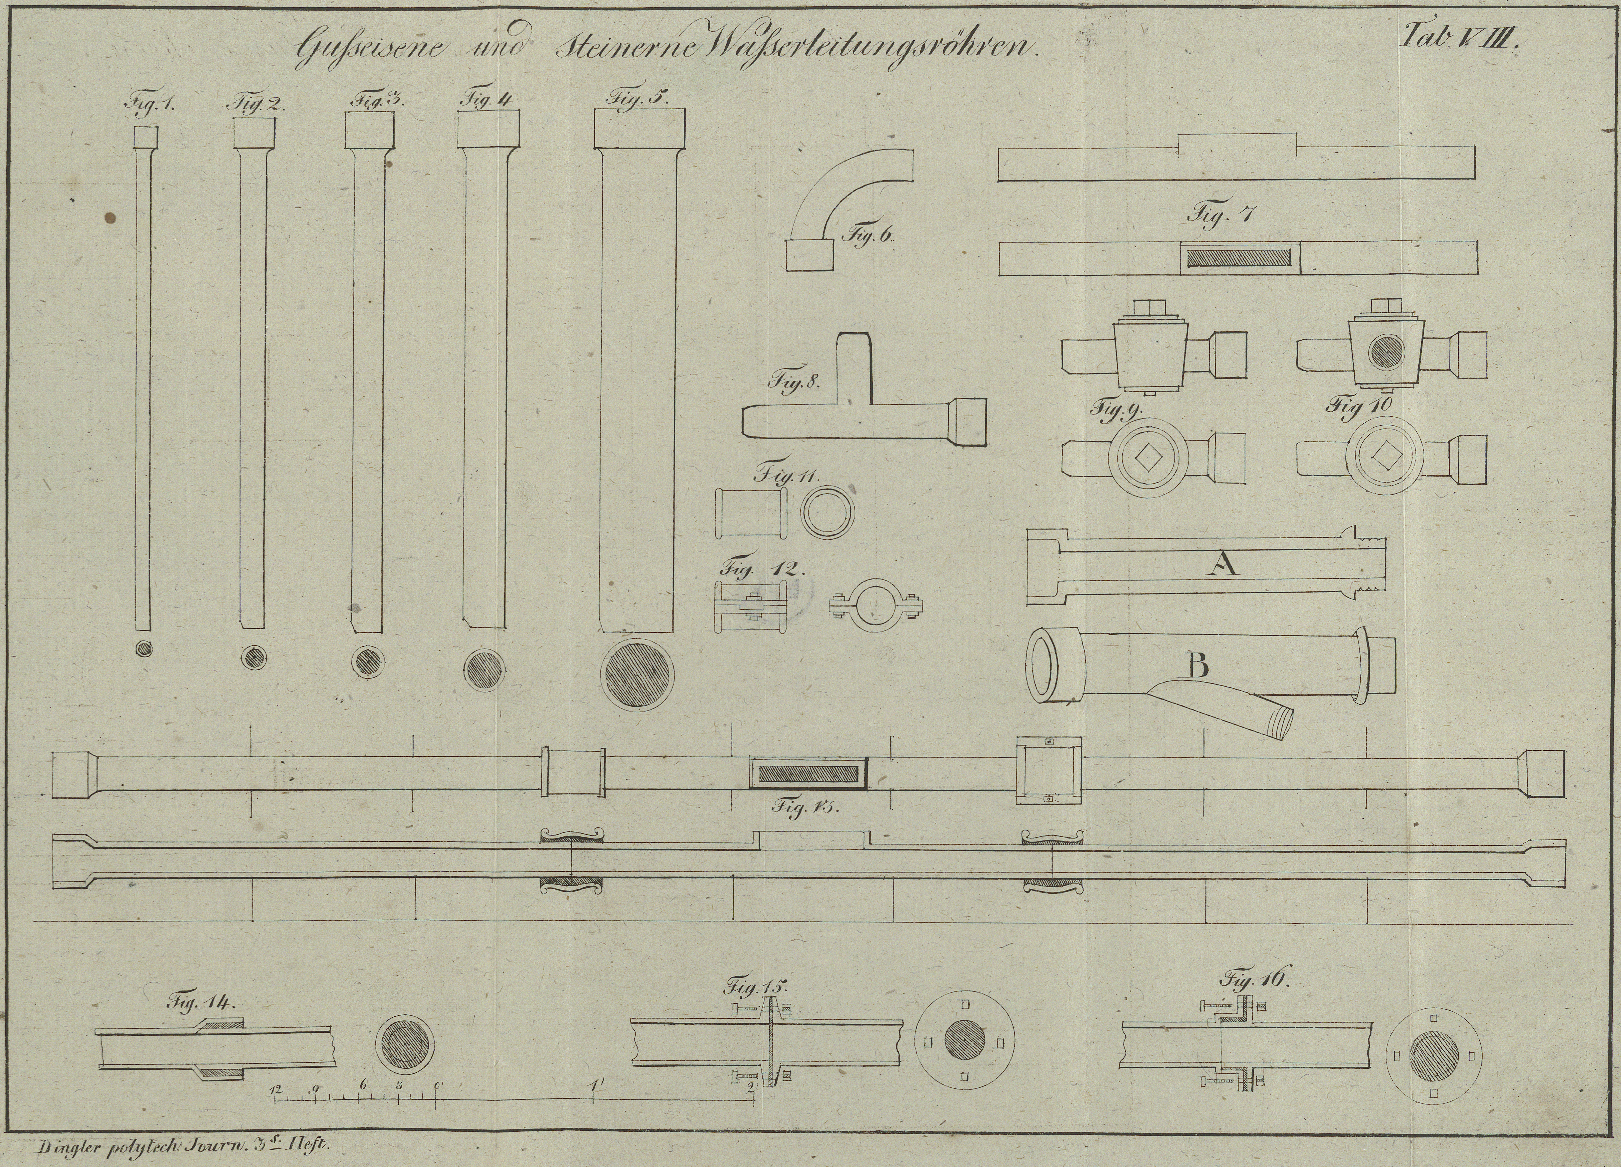 Gußeisene und steinerne Waßerleitungsröhren.
Tab. VIII.
Fig. 1.
Fig. 2.
Fig. 3.
Fig. 4
Fig. 5.
Fig. 6.
Fig. 7
Fig. 8.
Fig. 9.
Fig 10
Fig. 11.
Fig. 12.
A
B
Fig. 13.
Fig. 14.
Fig. 15.
Fig. 16.
12 9 6 3 0 1' 2
Dingler polytech. Journ. 3s. Heft.